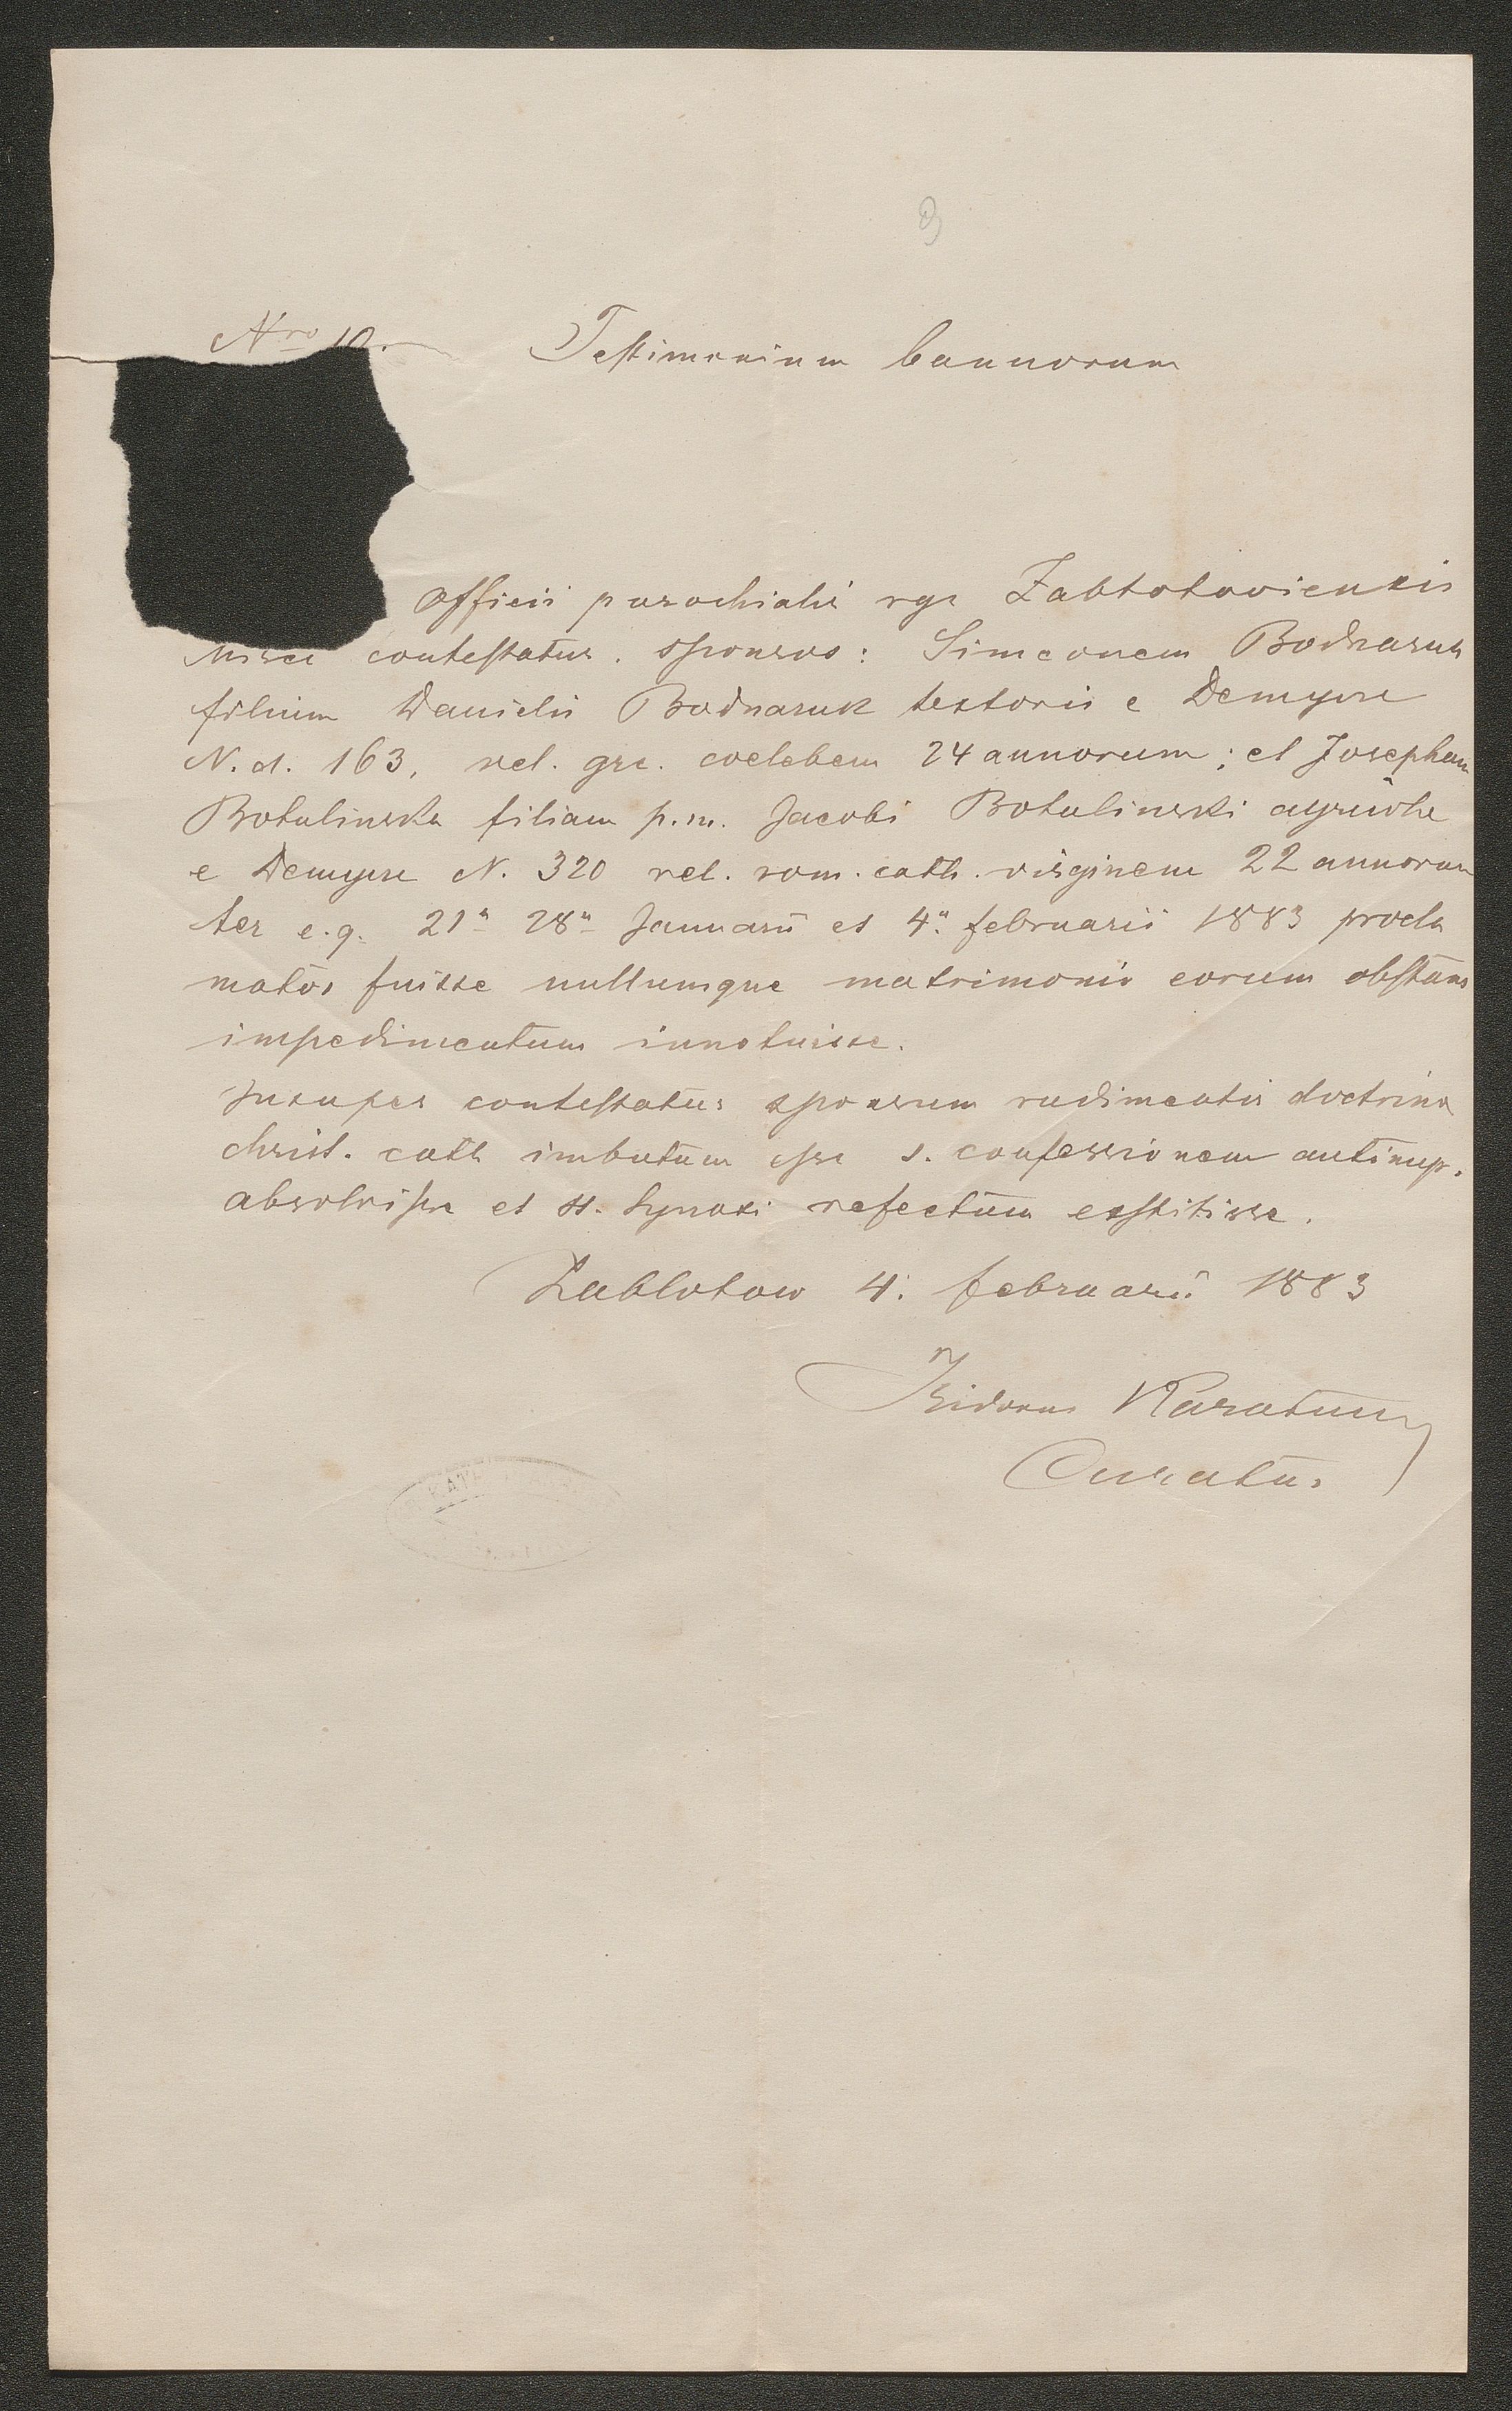 Nro 10.
Testimonium bannorum
Officii parochialis rgc Zabłotoviensis
contestatur. sponsos: Simeonem Bodnaruk
filium Danielis Bodnaruk textoris e Demycze
N. d. 163, rel. grc. coelebem 24 annorum; et Josepham
Botulinska filiam p.m. Jacobi Botulinski agricolae
e Demycze N. 320 rel. rom. cath. virginem 22 annorum
ter e. q. 21a 28a Januarii et 4a februarii 1883 procla
matos fuisse nullumque matrimonio eorum obstans
impedimentum innotuisse.
Insuper contestatur sponsum rudimentis doctrina
christ. cath imbutum esse s. confessionem antinup.
absolvisse et st. Synaxi refectum exstitisse.
Zablotow 4. februarii 1883
Isidorus
Curatus